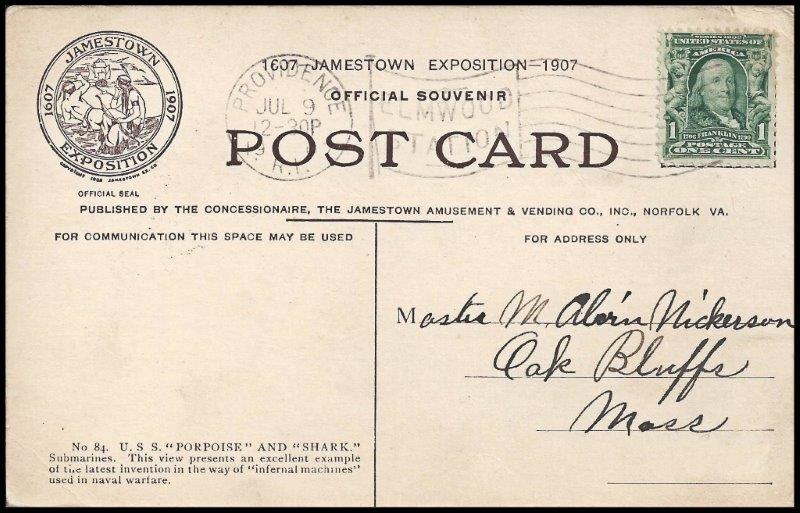 JAMESTOWN
1607 1907
EXPOSITION
OFFICIAL SEAL
1607-JAMESTOWN EXPOSITION-1907
OFFICIAL SOUVENIR
POST CARD
PROVIDENCE
JUL 9
12-30P
R.I.
ELMWOOD
STATION
SERIES 1902
UNITED STATES OF
AMERICA
1 FRANKLIN 1
POSTAGE
ONE CENT
PUBLISHED BY THE CONCESSIONAIRE, THE JAMESTOWN AMUSEMENT & VENDING CO., INC., NORFOLK VA.
FOR COMMUNICATION THIS SPACE MAY BE USED
FOR ADDRESS ONLY
Master M. Alvin Nickerson
Oak Bluffs
Mass
No 84. U. S. S. "PORPOISE" AND "SHARK."
Submarines. This view presents an excellent example
of the latest invention in the way of "infernal machines"
used in naval warfare.